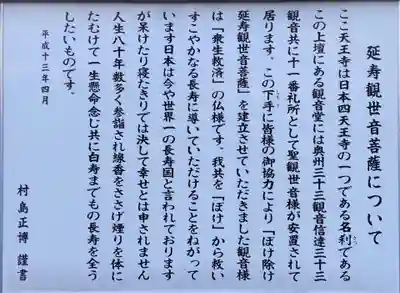 延寿観世音菩薩について
ここ天王寺は日本四天王寺の一つである名刹である
この上壇にある観音堂には奥州三十三観音信達三十三
観音共に十一番札所として聖観世音様が安置されて
居ります。この下手に皆様の御協力により「ぼけ除け
延寿観世音菩薩」を建立させていただきました観音様
は「衆生救済」の仏様です。我共を「ぼけ」から救い
すこやかなる長寿に導いていただけることをねがって
います日本は今や世界一の長寿国と言われております
が呆けたり寝たきりでは決して幸せとは申されません
人生八十年数多く参詣され線香をささげ煙りを体に
たむけて一生懸命念じ共に白寿までもの長寿を全う
したいものです。
平成十三年四月
村島正博 謹書